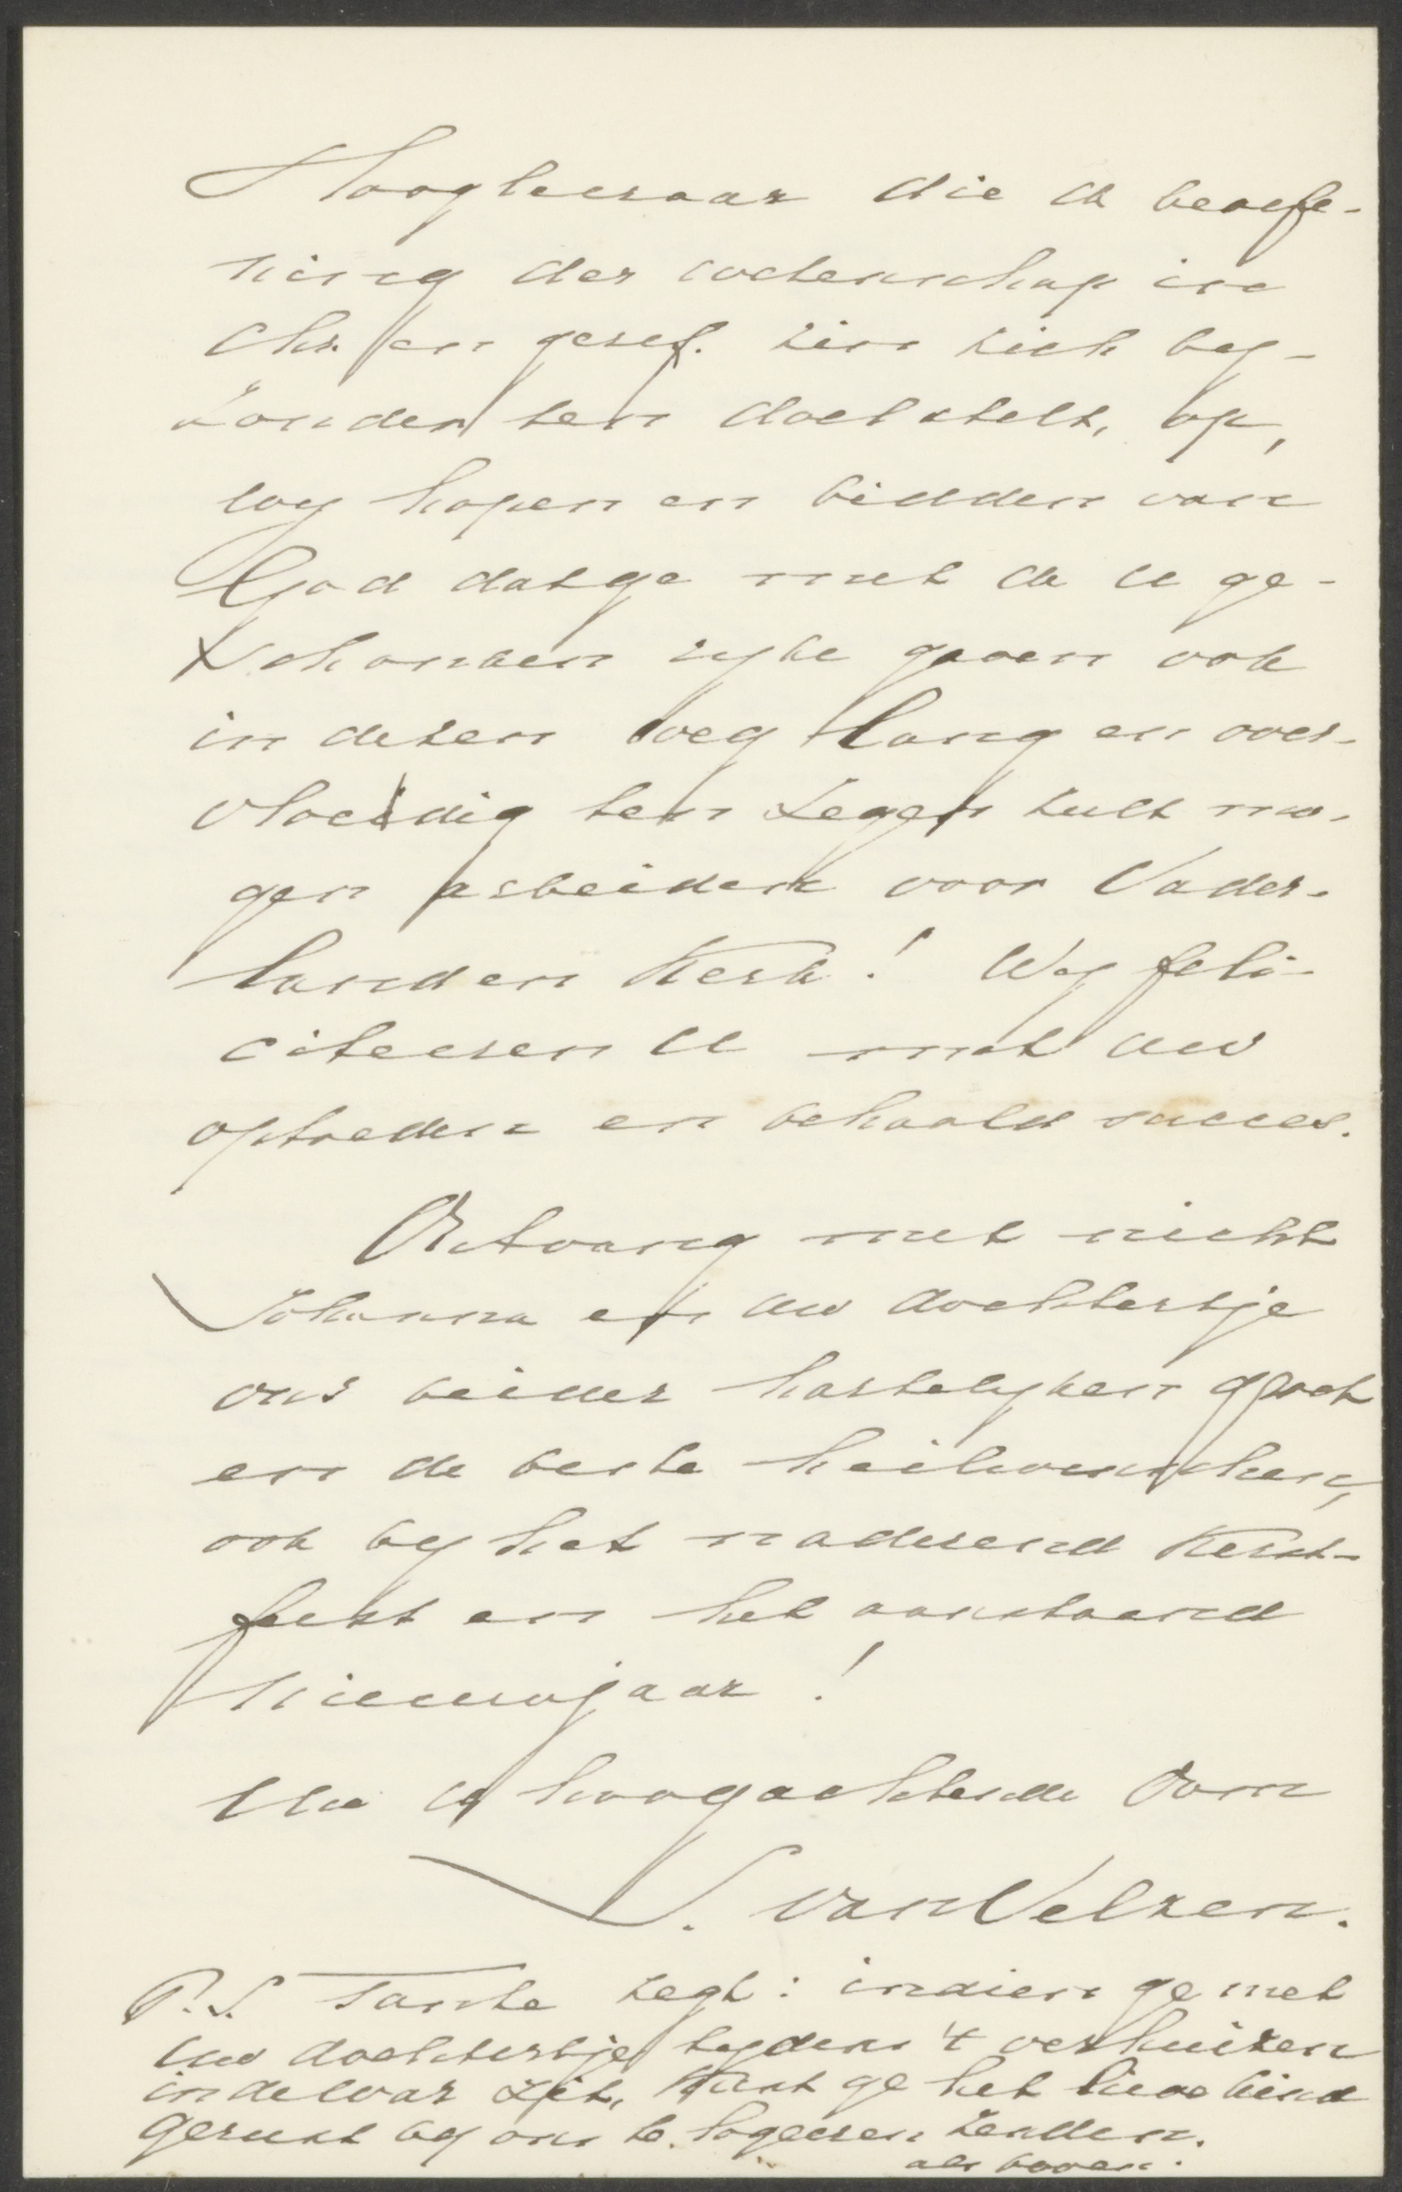 Hoogleeraar die de beoefe-
ning der wetenschap in
Chr. en geref. zin zich by-
zonder ten doel stelt, op,
wy hopen en bidden van
God dat ge met de U ge-
schonken ryke gaven ook
in dezen weg lang en over-
vloeidig ten zegen zult mo-
gen arbeiden voor Vader-
land en Kerk! Wy feli-
citeeren U met uw
optreden en behaald succes.
Ontvang met nicht
Johanna en uw dochtertje
ons beider hartelyken groet
en de beste heilwenschen,
ook by het naderend Kerst-
feest en het aanstaand
nieuwjaar!
Uw U hoogachtende Oom
S. van Velzen.
P.S. Tante zegt: indien ge met
uw dochtertje tydens 't verhuizen
in de war zit, kunt ge het lieve kind
gerust by ons te logeeren zenden.
als boven.